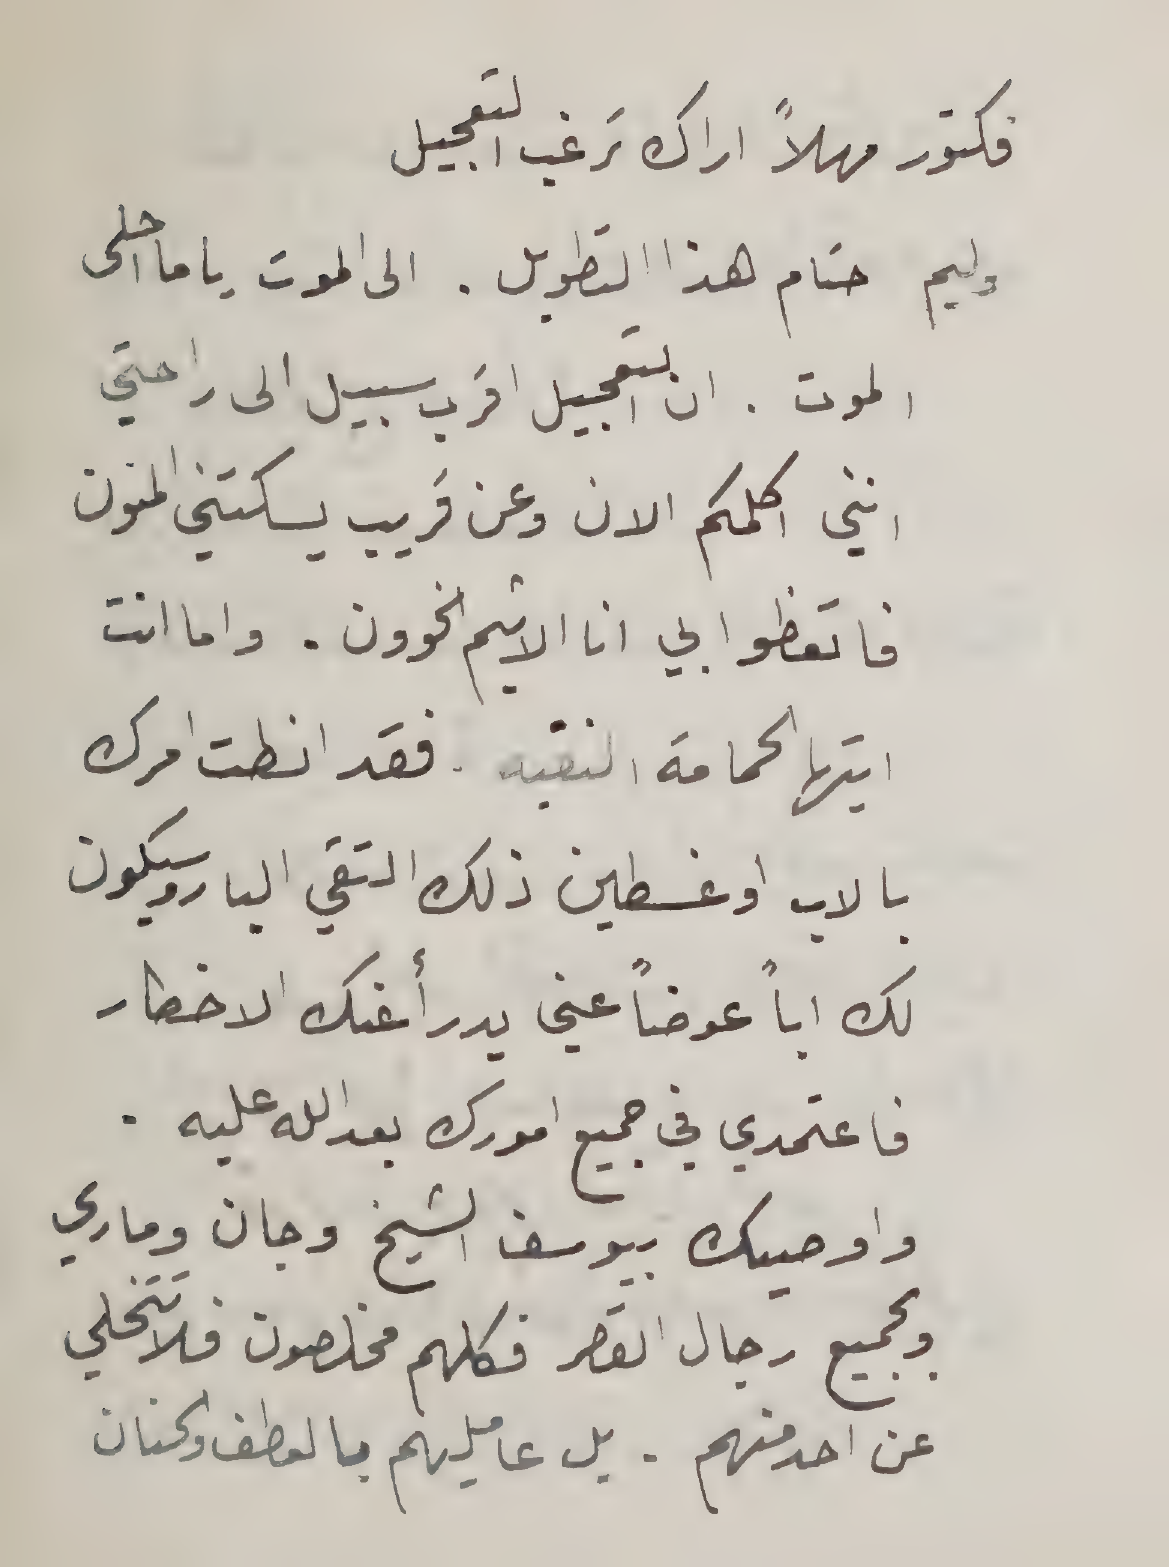 فكتور مهلاً اراك ترغب التعجيل
وليم حتام هذا التطويل . الى الموت ياما احلى
الموت . ان التعجيل اقرب سبيل الى راحتي
انني اكلمكم الان وعن قريب يسكتني المنون
فاتعظوا بي انا الاثيم الخوون . واما انت
ايتها الحمامة النقية . فقد انطت امرك
بالاب اوغسطين ذلك التقي البار وسيكون
لك اباً عوضاً عني يدرأ عنك الاخطار
فاعتمدي في جميع امورك بعد الله عليه .
واوصيك بيوسف الشيخ وجان وماري
وبجميع رجال القصر فكلهم مخلصون فلا تتخلي
عن احد منهم . بل عامليهم بالعطف والحنان